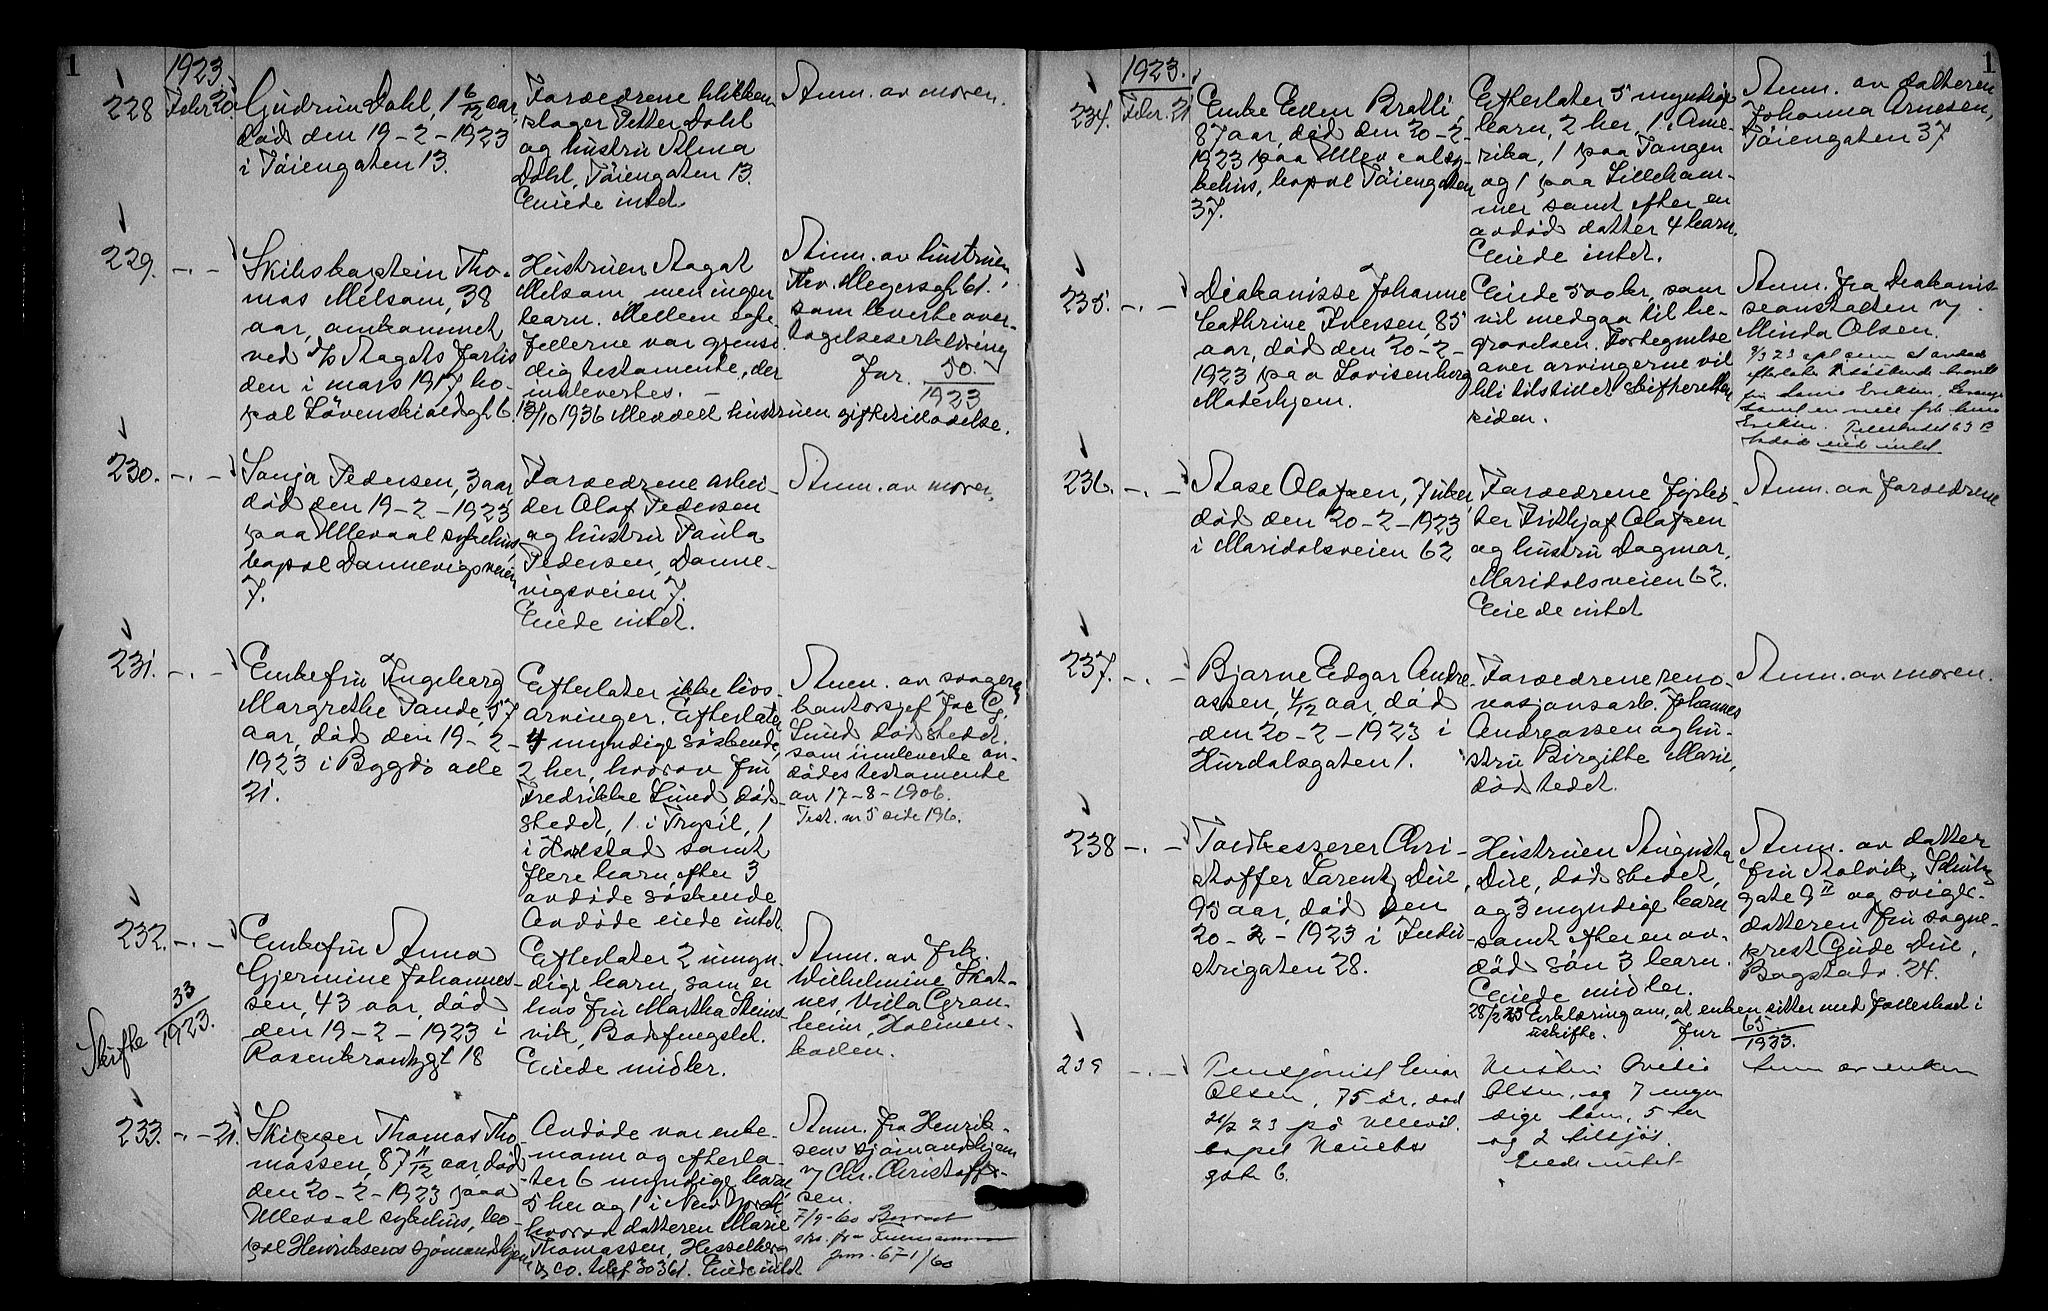 1
1923.
228
Febr. 20.
Gudrun Dahl, 1 6/12 aar,
död den 19-2-1923
i Töiengaten 13.
Foræedrene blikken-
slager Petter Dahl
og hustru Alma
Dahl, Töiengaten 13.
Eiede intet.
Anm. av moren.
229. -.-
Skibskaptein Tho-
mas Melsom, 38
aar, omkommet
ved d/s Aagots forlis
den i mars 1917, bo-
pæl Lövenskioldsgt. 6.
Hustruen Aagot
Melsom, men ingen
barn. Mellem egte-
fellerne var gjensi-
dig testamente, der
innlevertes. -
13/10 1936 Meddelt hustruen giftetilladelse.
Anm. av hustruen
Thv. Meyersgt. 61.,
som leverte over-
tagelseserklæring
Jnr. 50./1923
230. -.-
Sonja Pedersen, 3 aar,
död den 19-2-1923
paa Ullevaal sykehus,
bopæl Dannevigsveien
7.
Foræedrene arbei-
der Olaf Pedersen
og hustru Paula
Pedersen, Danne-
vigsveien 7.
Eiede intet.
Anm. av moren.
231. -.-
Enkefru Ingeborg
Margrethe Pande, 57
aar, död den 19-2-
1923 i Bygdö alle
21.
Efterlater ikke livs-
arvinger. Efterlater
4 myndige söskende,
2 her, hvorav fru
Fredrikke Lund, död-
stedet, 1 i Trysil, 1
i Harstad samt
flere barn efter 3
avdöde söskende
Avdöde eiede intet.
Anm. av svogeren
kontorsjef Joe G.
Lund dödstedet.
som innleverte av-
dödes testamente
av 17-8-1906.
Test. nr 5 side 196.
232. -.-
Skifte 33/1923.
Enkefru Anna
Gjermine Johannes-
sen, 43 aar, död
den 19-2-1923 i
Rosenkrantzgt 18
Efterlater 2 umyn-
dige barn, som er
hos fru Martha Steins-
vik, Bodö
Eiede midler.
Anm. av frk.
Wilhelmine Skot-
nes, Villa Gran-
heim, Holmen-
kollen.
233. -.- 21.
Skipper Thomas Tho-
massen, 87 11/12 aar, död
den 20-2-1923 paa
Ullevaal sykehus, bo-
pæl Henriksens sjömandshjem
Avdöde var enke-
mann og efterla-
ter 6 myndige barn,
5 her og 1 i New York
hvorav datteren Marie
Thomassen, Hesselberg
& co. telef 30361. Eiede intet
Anm. fra Henrik-
sens sjömandshjem
v/ Chr. Christoffer-
sen.
7/9-60
jnr. 67-1/60
1
1923.
234.
Febr. 21
Enke Ellen Bratli,
87 aar, död den 20-2-
1923 paa Ullevaalsy-
kehus, bopæl Töiengaten
37.
Efterlater 5 myndige
barn, 2 her, 1 i Ame-
rika, 1 paa Tangen
og 1 paa Lilleham-
mer samt efter en
avdöd datter 4 barn.
Eiede intet.
Anm. av datteren
Johanna Arnesen,
Töiengaten 37.
235. -.-
Diakonisse Johanne
Cathrine Iversen, 85
aar, död den 20-2-
1923 paa Lovisenberg
Moderhjem.
Eiede 500 kr, som
vil medgaa til be-
gravelsen. Fortegnelse
over arvingerne vil
bli tilstillet skifteretten
siden.
Anm. fra Diakonis-
seanstalten v/
Minda Olsen.
intet
236. -.-
Aase Olafsen, 7 uker,
död den 20-2-1923
i Maridalsveien 62
Foræedrene
Frithjof Olafsen
og hustru Dagmar,
Maridalsveien 62.
Eiede intet
Anm. av foræedrene
237. -.-
Bjarne Edgar Andre-
assen, 4/12 aar, död
den 20-2-1923 i
Hurdalsgaten 1.
Foræedrene reno-
vasjonsarb. Johannes
Andreassen og hu-
stru Birgitte Marie,
dödstedet.
Anm. av moren.
238 -.-
Toldkesserer Chri-
stoffer Larentz Due,
95 aar, död den
20-2-1923 i Indu-
strigaten 28.
Hustruen Augusta
Due, död stedet,
og 3 myndige barn
samt efter en av-
död sön 3 barn.
Eiede midler.
28/2 23 Erklæring om, at enken sitter med fællesboet i
uskifte. Jnr 65/1923.
Anm. av datter
fru Stolvik, Schultz
gate 9 II og sviger-
datteren fru sogne-
prest Gude Due,
Bogstadv. 24.
239 -.-
Pensjonist Einar
Olsen, 75 år, död
20/2 23 på Ullevål.
bopel
gate 6.
Hustru
Olsen, og 7 myn
dige barn, 5 her
og 2 tilsjös.
Eiede intet
Anm av enken